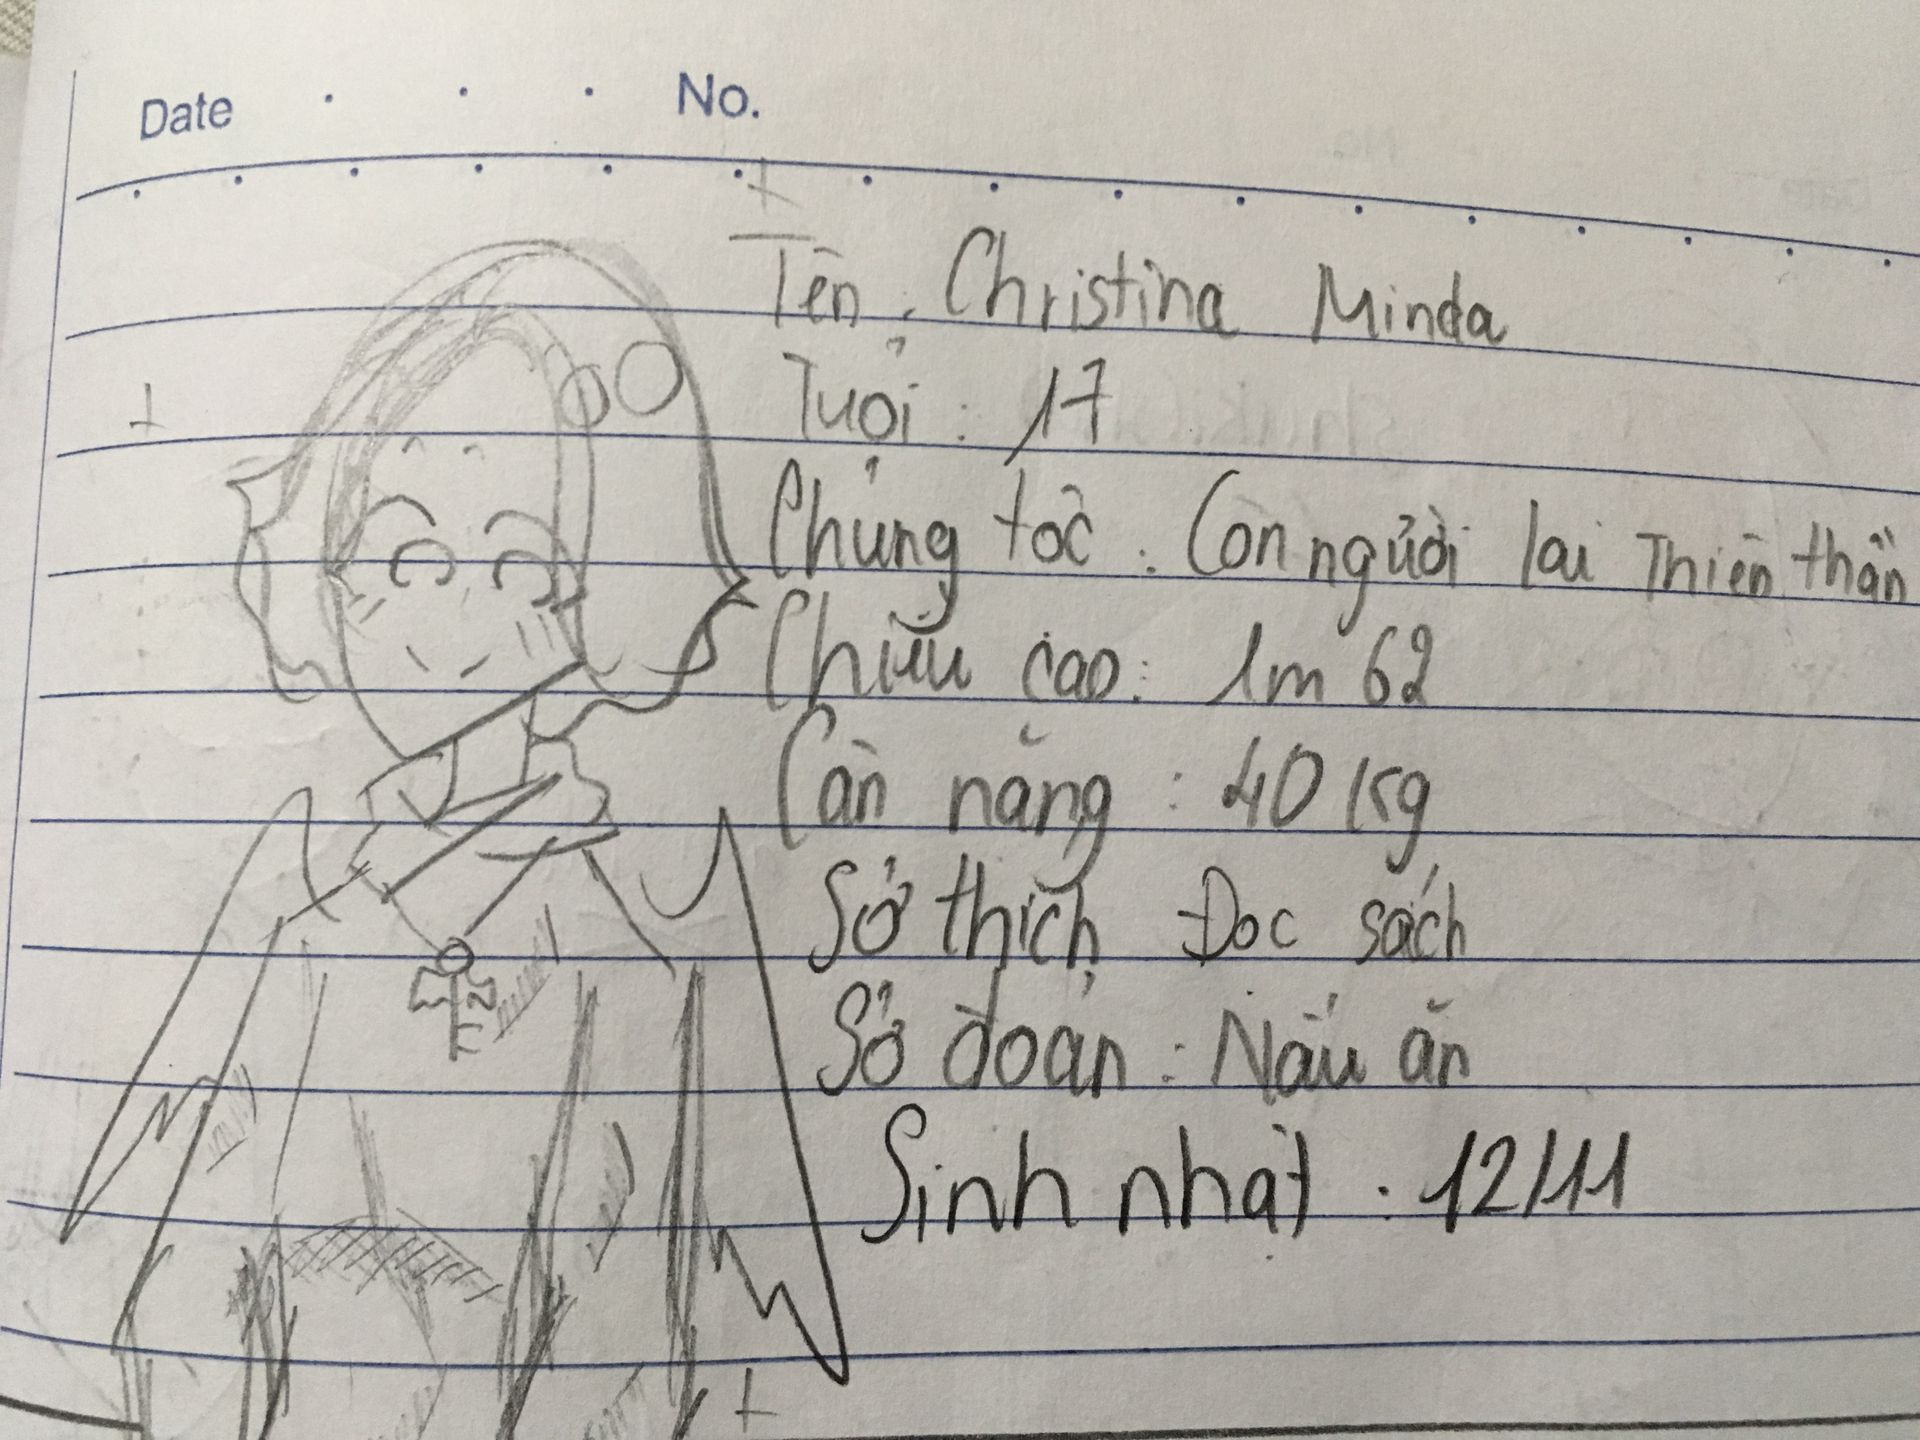 Date No.
Tên : Christina Minda
Tuổi : 17
Chủng tộc : Con người lai Thiên thần
Chiều cao : 1m 62
Cân nặng : 40 kg
Sở thích Đọc sách
Sở đoản : Nấu ăn
Sinh nhật : 12/11